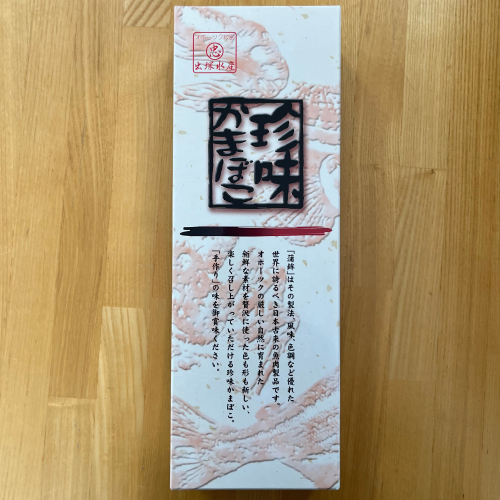 オホーツク紋別
忠
出塚水産
珍味
かまぼこ
「蒲鉾」はその製法、風味、色調など優れた
世界に誇るべき日本古来の魚肉製品です。
オホーツクの厳しい自然に育まれた
新鮮な素材を贅沢に使った色も形も新しい、
楽しく召し上がっていただける珍味かまぼこ。
「手作り」の味を御賞味ください。